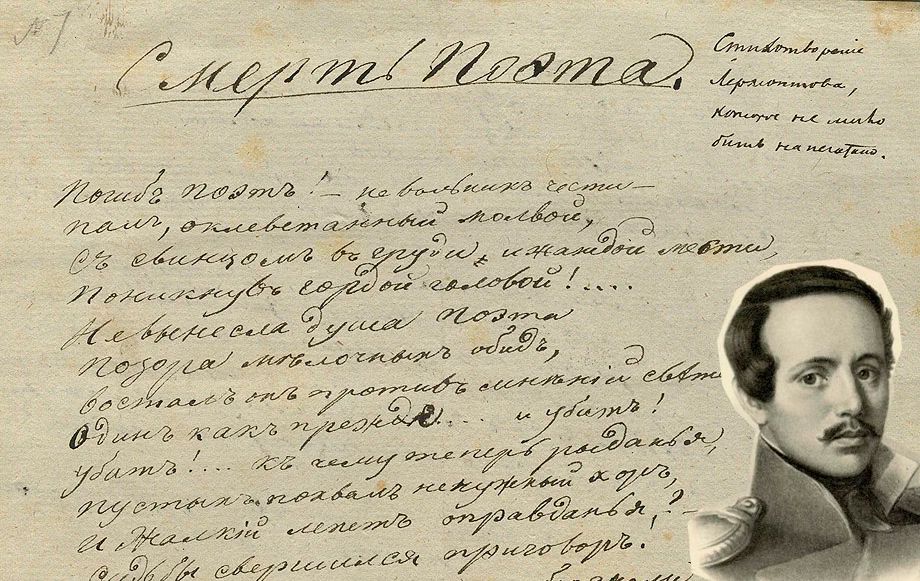 № 7
Смерть Поэта.
Стихотвореніе
Лермонтова,
которое не могло
быть напечатано.
Погибъ поэтъ! – невольникъ чести –
палъ, оклеветанный молвой,
Съ свинцомъ въ груди, и жаждой мести,
Поникнувъ гордой головой!....
Не вынесла душа поэта
Позора мѣлочныхъ обидъ,
возсталъ онъ противъ мнѣній свѣта
Одинъ какъ прежде.... и убитъ!
Убитъ!.... къ чему теперь рыданья,
пустыхъ похвалъ ненужный хоръ,
И жалкій лепетъ оправданья,? –
Судьбы свершился приговоръ!